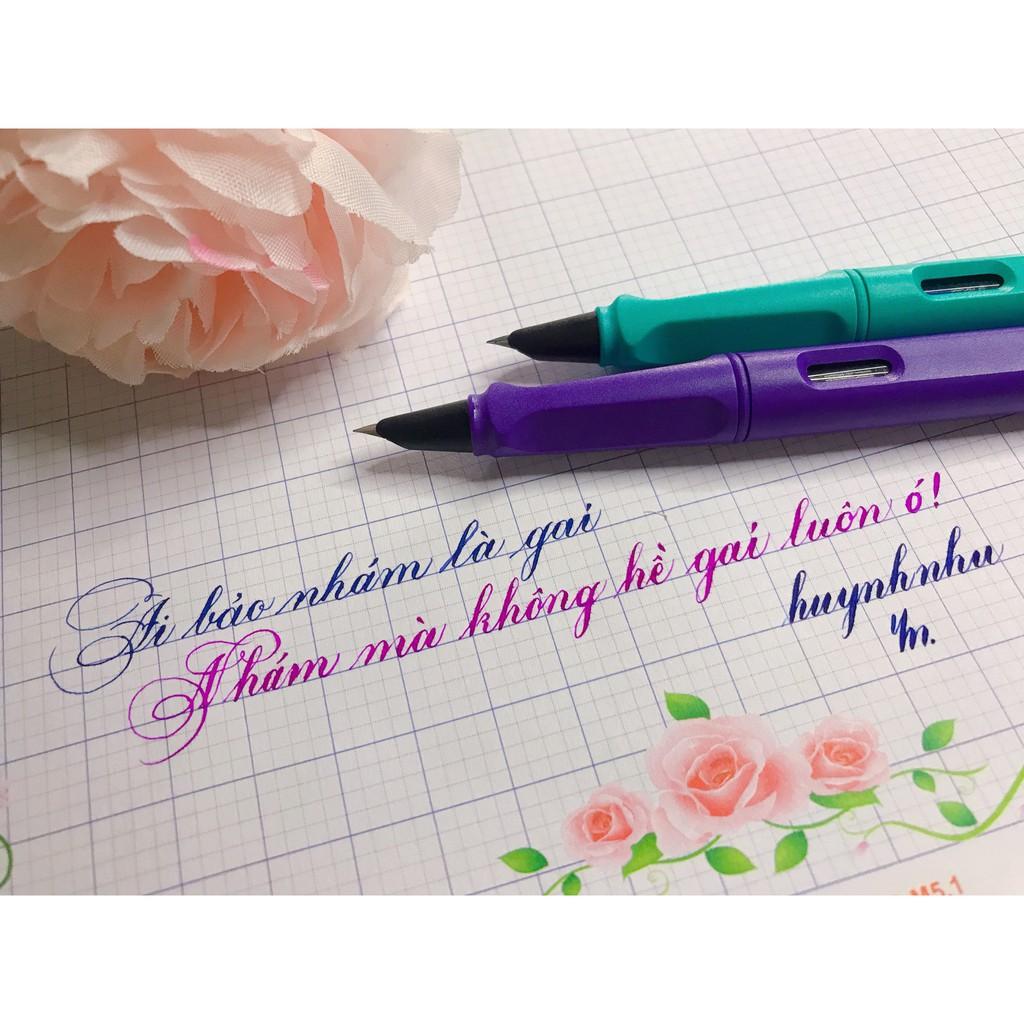 Ai bảo nhám là gai
Nhám mà không hề gai luôn ó!
huynhnhu
M5.1